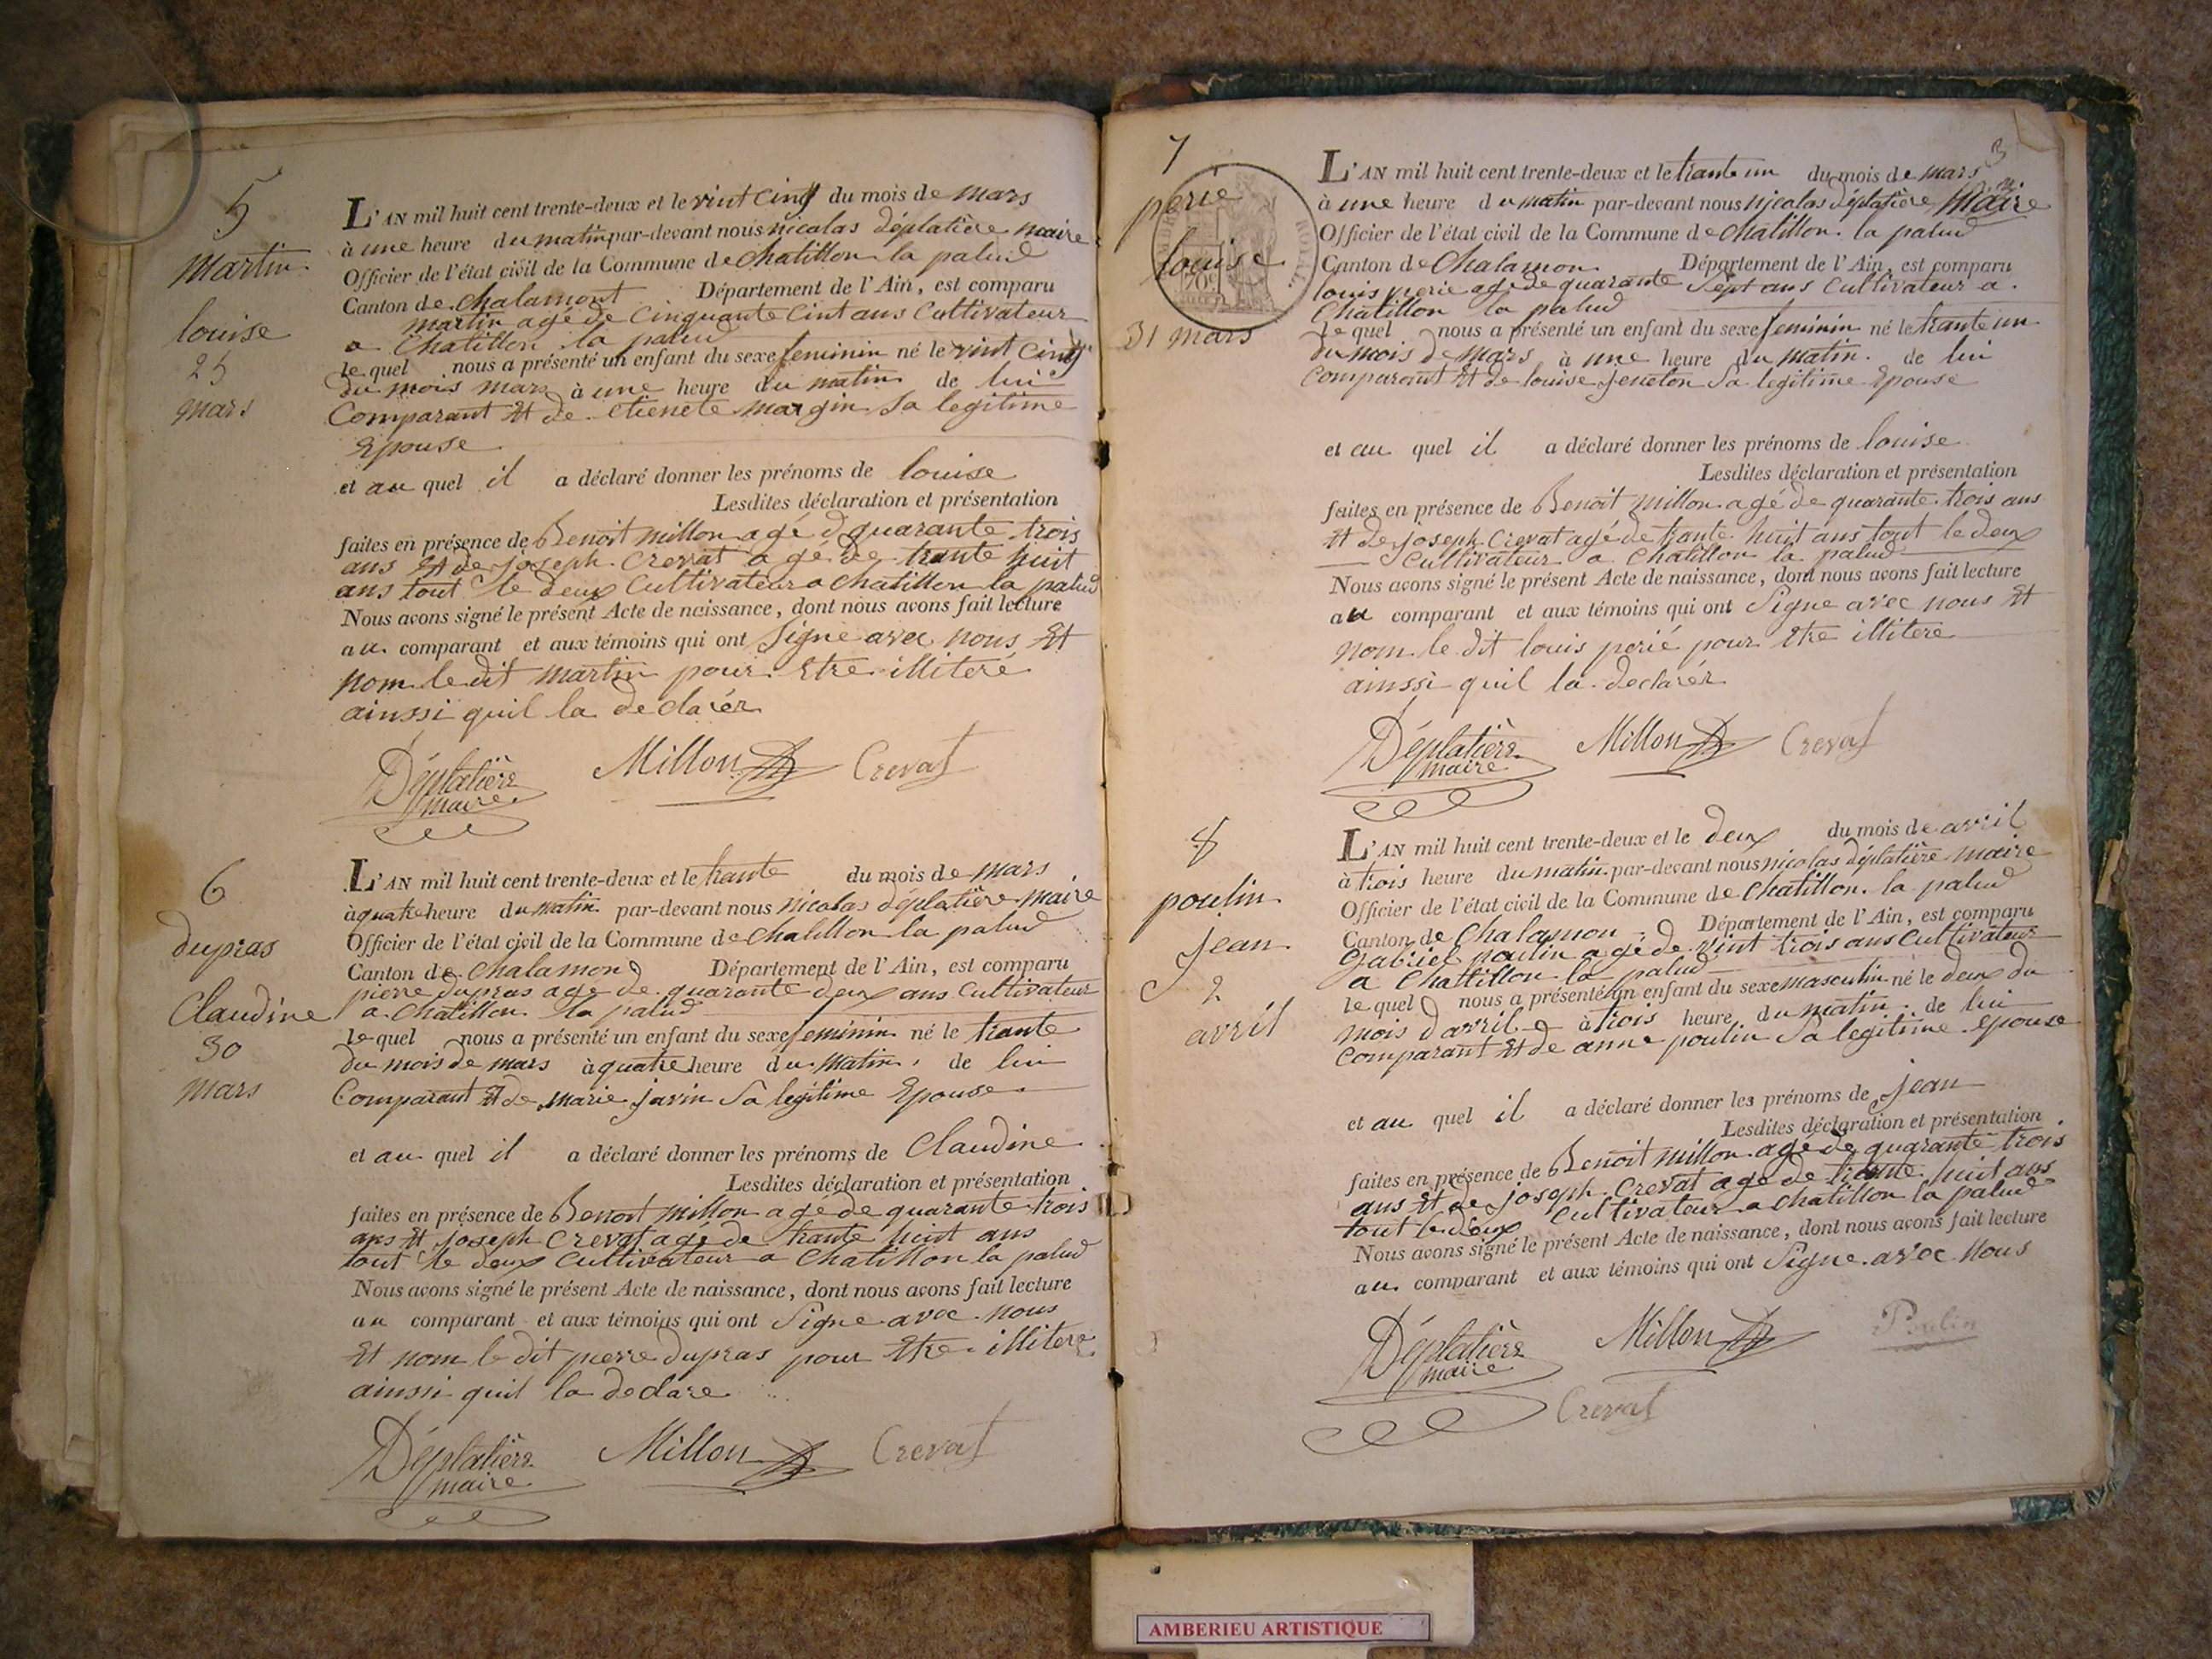 5
Martin
louise
25
mars
L'AN mil huit cent trente-deux et le vint cinq du mois de mars
à une heure du matin par-devant nous nicolas déplatière maire
Officier de l'état civil de la Commune de chatillon la palud
Canton de chalamont Département de l'Ain, est comparu
martin agé de cinquante cint ans Cultivateur
a chatillon la palud
le quel nous a présenté un enfant du sexe feminin né le vint cinq
du mois mars à une heure du matin de lui
Comparant et de etienete margin sa legitime
Epouse
et au quel il a déclaré donner les prénoms de louise
Lesdites déclaration et présentation
faites en présence de Benoit millon agé d quarante trois
ans et de joseph Crevat agé de trante huit
ans tout le deux Cultivateur a chatillon la palud
Nous avons signé le présent Acte de naissance, dont nous avons fait lecture
au comparant et aux témoins qui ont Signe avec nous Et
nom le dit martin pour Etre illiteré
ainssi quil la declarér
Déplatière maire Millon Crevat
6
dupras
Claudine
30
mars
L'AN mil huit cent trente-deux et le trante du mois de mars
à quatre heure du matin par-devant nous nicolas déplatière maire
Officier de l'état civil de la Commune de chatillon la palud
Canton de chalamon Département de l'Ain, est comparu
pierre dupras age de quarante deux ans Cultivateur
a chatillon la palud
le quel nous a présenté un enfant du sexe feminin né le trante
du mois de mars à quatre heure du matin de lui
Comparant et de marie javin sa legitime Epouse
et au quel il a déclaré donner les prénoms de Claudine
Lesdites déclaration et présentation
faites en présence de Benoit millon agé de quarante trois
ans et joseph Crevat agé de trante huit ans
tout le deux Cultivateur a chatillon la palud
Nous avons signé le présent Acte de naissance, dont nous avons fait lecture
au comparant et aux témoins qui ont Signe avec nous
Et nom le dit pierre dupras pour Etre illitere
ainssi quil la declare
Déplatière maire Millon Crevat
7
perié
louise
31 mars
3
L'AN mil huit cent trente-deux et le trante un du mois de mars
à une heure du matin par-devant nous nicolas déplatière Maire
Officier de l'état civil de la Commune de chatillon la palud
Canton de Chalamon Département de l'Ain, est comparu
louis perie agé de quarante Sept ans Cultivateur a
Chatillon la palud
le quel nous a présenté un enfant du sexe feminin né le trante un
du mois de mars à une heure du matin de lui
Comparant et de louise feneton Sa legitime Epouse
et au quel il a déclaré donner les prénoms de louise
Lesdites déclaration et présentation
faites en présence de Benoit millon agé de quarante trois ans
et de joseph Crevat agé de trante huit ans tout le deux
Cultivateur a Chatillon la palud
Nous avons signé le présent Acte de naissance, dont nous avons fait lecture
au comparant et aux témoins qui ont Signe avec nous Et
nom le dit louis perié pour Etre illitere
ainssi quil la declarér
Déplatière maire Millon Crevat
8
poulin
jean
2
avril
L'AN mil huit cent trente-deux et le deux du mois de avril
à trois heure du matin par-devant nous nicolas déplatière maire
Officier de l'état civil de la Commune de chatillon la palud
Canton de Chalamon Département de l'Ain, est comparu
gabriel poulin agé de vint trois ans Cultivateur
a Chatillon la palud
le quel nous a présenté un enfant du sexe masculin né le deux du
mois d avril à trois heure du matin de lui
Comparant et de anne poulin Sa legitime epouse
et au quel il a déclaré donner les prénoms de jean
Lesdites déclaration et présentation
faites en présence de Benoit millon agé de quarante trois
ans et de joseph Crevat agé de trante huit ans
tout le deux Cultivateur a chatillon la palud
Nous avons signé le présent Acte de naissance, dont nous avons fait lecture
au comparant et aux témoins qui ont Signe avec nous
Déplatière maire Millon Poulin
Crevat
AMBERIEU ARTISTIQUE